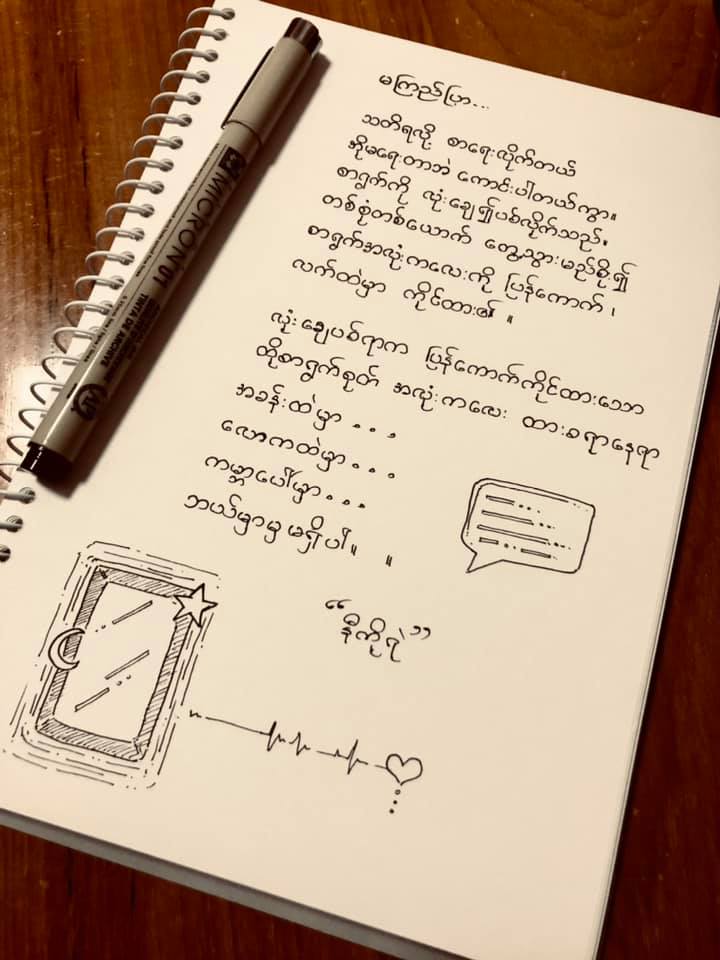 မကြည်ပြာ...
သတိရလို့ စာရေးလိုက်တယ်
ကိုမရေးတာဘဲ ကောင်းပါတယ်ကွာ။
စာရွက်ကို လုံးချေ၍ပစ်လိုက်သည်။
တစ်စုံတစ်ယောက် တွေ့သွားမည်စိုး၍
စာရွက်အလုံးကလေးကို ပြန်ကောက်၊
လက်ထဲမှာ ကိုင်ထား၏ ။
လုံးချေပစ်ရာက ပြန်ကောက်ကိုင်ထားသော
ထိုစာရွက်စုတ် အလုံးကလေး ထားစရာနေရာ
အခန်းထဲမှာ . . .
လောကထဲမှာ . . .
ကမ္ဘာပေါ်မှာ . . .
ဘယ်မှာမှ မရှိပါ။ ။
“နီကိုရဲ”
MICRON 01